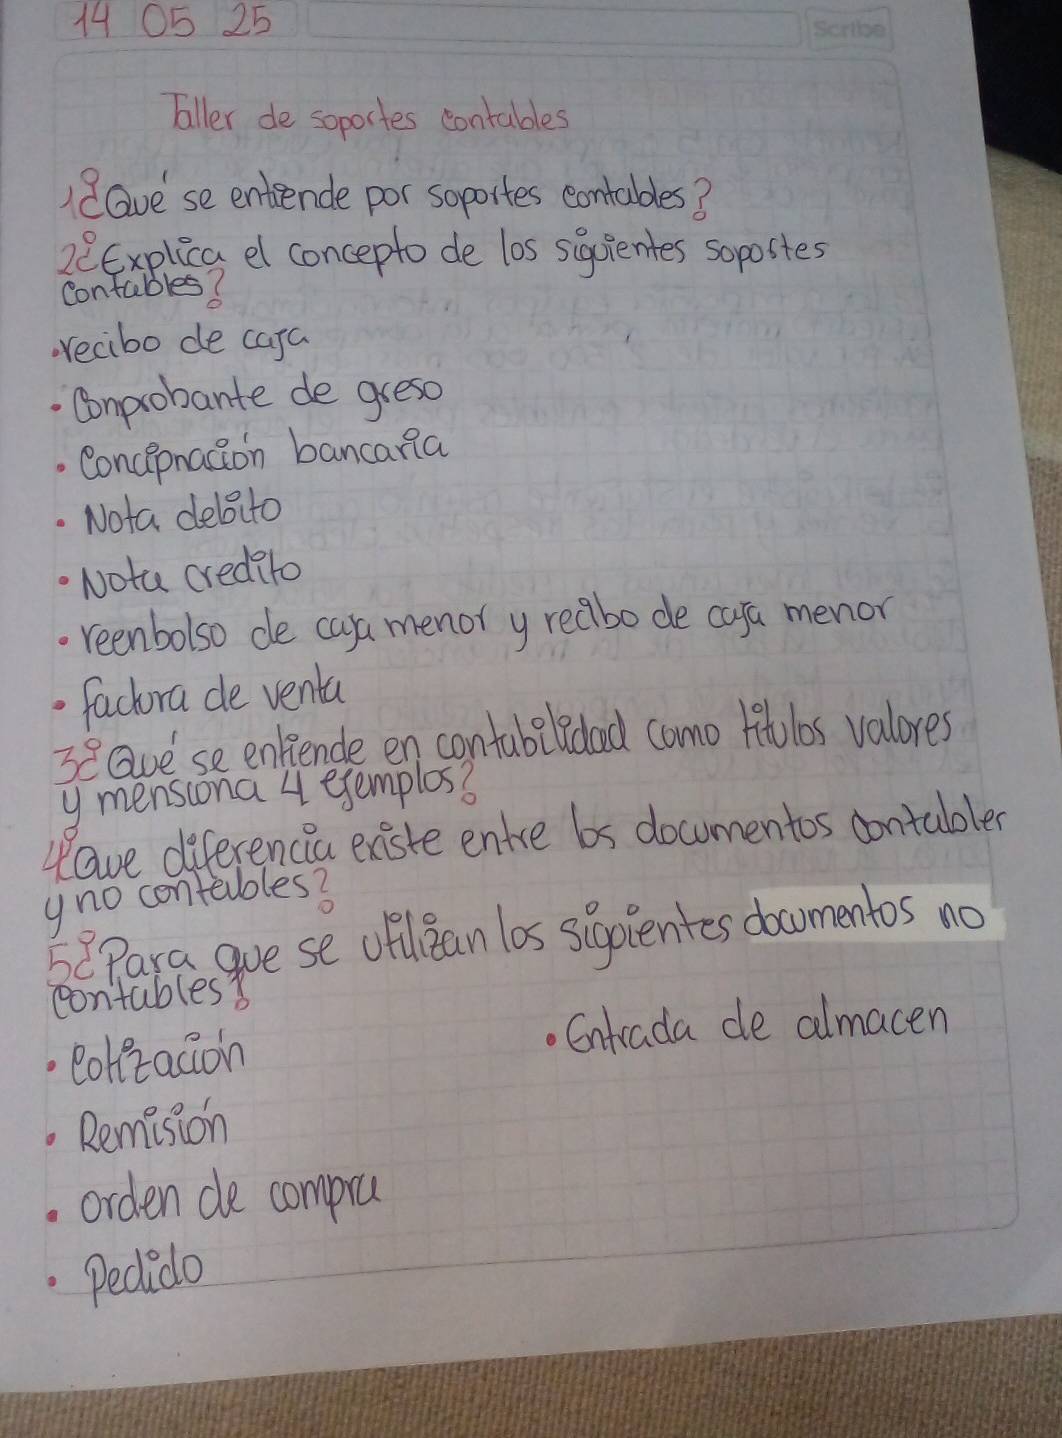 14 05 25
Scribe
Taller de soportes contables
1¿Qué se entiende por soportes contables?
2¿Explica el concepto de los siguientes soportes
contables?
.recibo de caja
• Conprobante de greso
• Concipnación bancaria
• Nota debito
• Nota credito
• reenbolso de caja menor y recibo de caja menor
• factura de venta
3¿Qué se entiende en contabilidad como titulos valores
y mensiona 4 ejemplos?
4¿Que diferencia existe entre los documentos contables
y no contables?
5¿Para que se utilizan los siguientes documentos no
contables?
• Cotización
• Entrada de almacen
• Remisión
• orden de compra
• Pedido